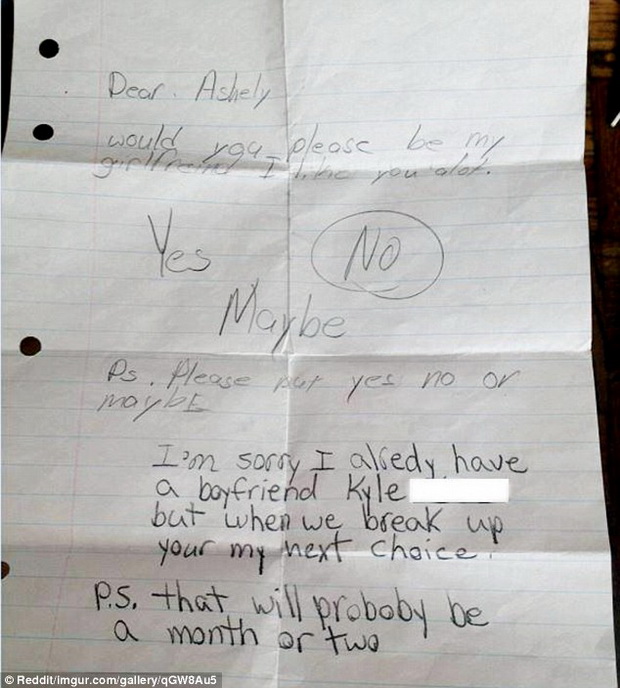 Dear. Ashely
would you please be my
girlfreind I like you alot.
Yes NO
Maybe
Ps. Please put yes no or
maybe
I'm sorry I alredy have
a boyfriend Kyle
but when we break up
your my next choice.
P.S. that will proboby be
a month or two
© Reddit/imgur.com/gallery/qGW8Au5